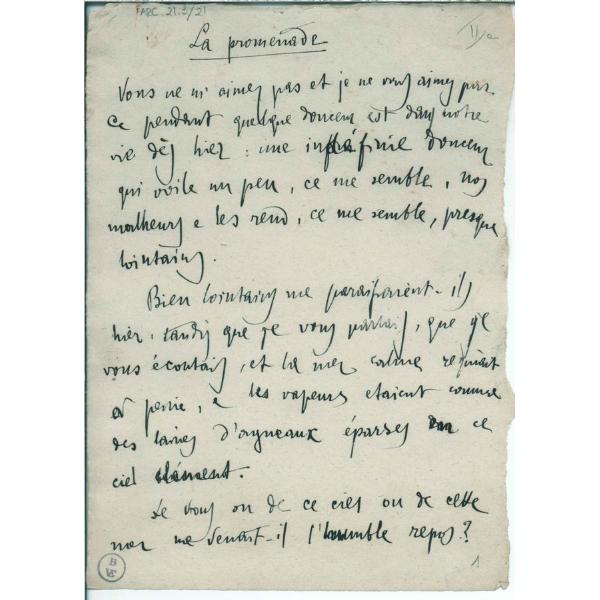 ARC. 21.2/21
II/a
La promenade
Vous ne m'aimez pas et je ne vous aimes pas.
Ce pendant quelque douceur est dans notre
vie dès hier : une indéfinie douceur
qui voile un peu, ce me semble, nos
malheurs e les rend, ce me semble, presque
lointains.
Bien lointains me paraissaient-ils
hier, tandis que je vous parlais, que je
vous écoutais, et la mer calme respirait
à peine, e les vapeurs etaient comme
des laines d'agneaux éparses en ce
ciel clément.
De vous ou de ce ciel ou de cette
mer me venait-il l'humble repos ?
1